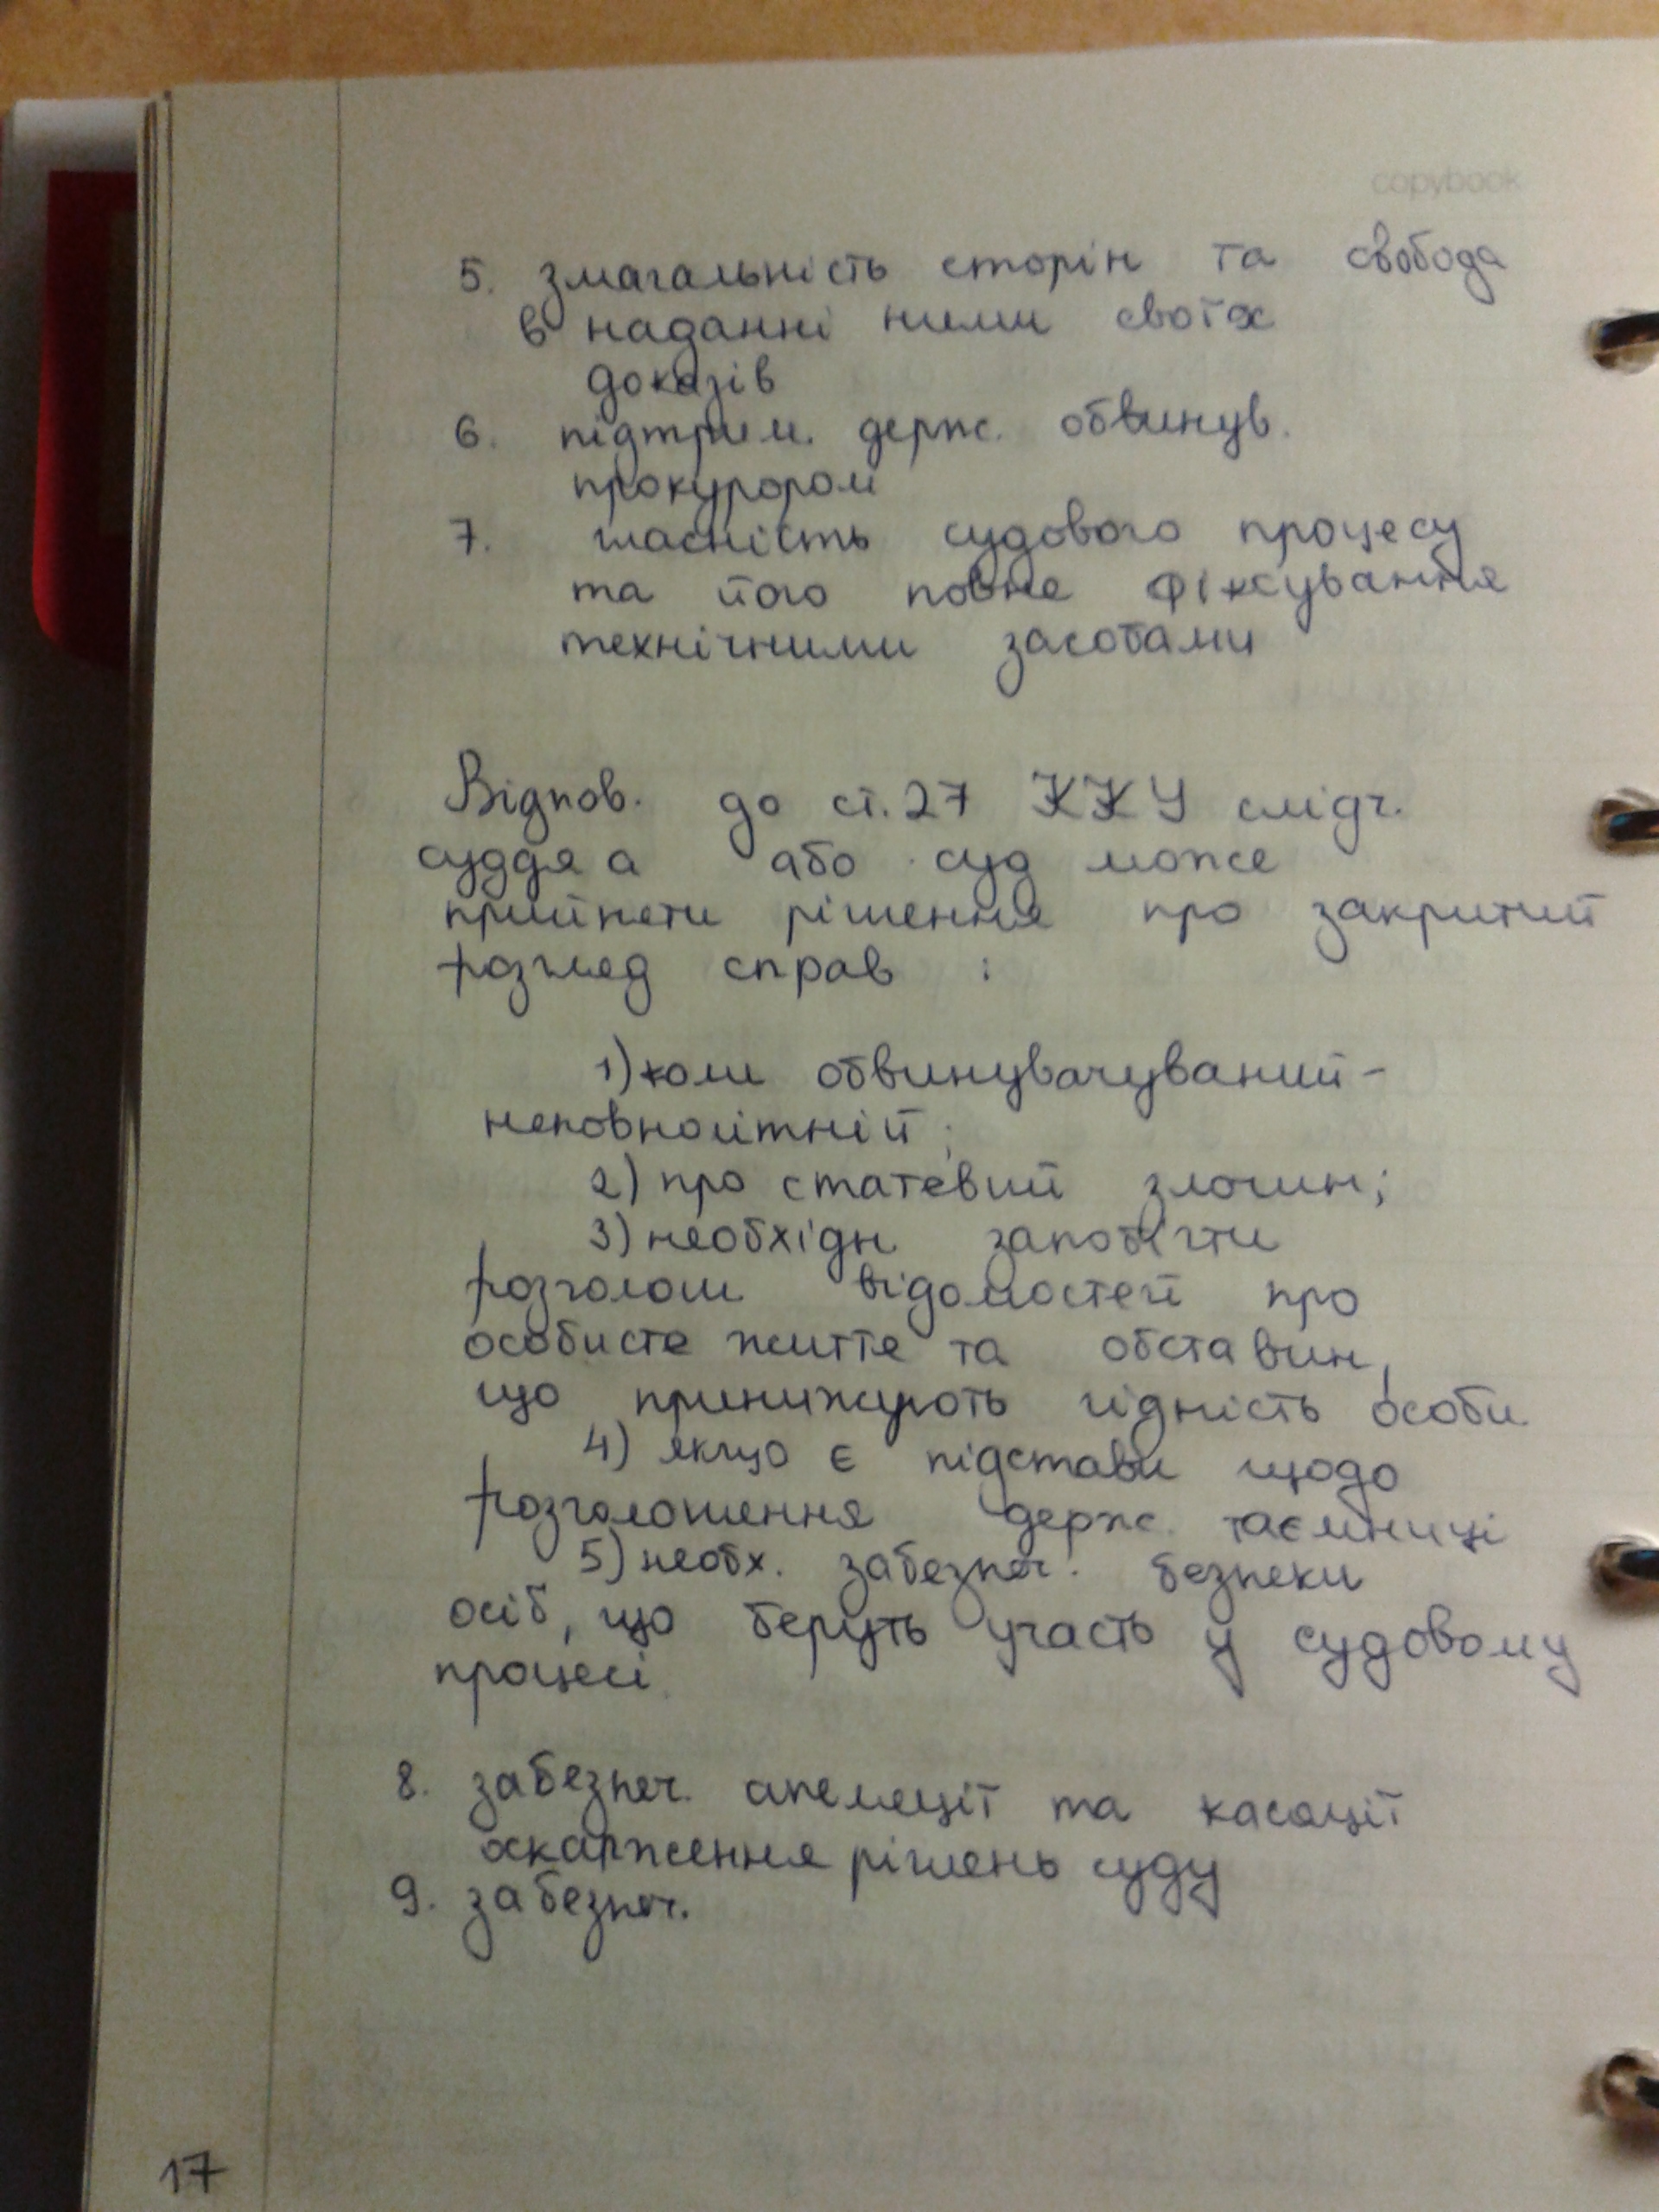 copybook
5. змагальність сторін та свобода
в наданні ними своїх
доказів
6. підтрим. держ. обвинув.
прокурором
7. гласність судового процесу
та його повне фіксування
технічними засобами
Відпов. до ст. 27 ККУ слідч.
суддя а або суд може
прийняти рішення про закритий
розгляд справ :
1) коли обвинувачуваний -
неповнолітній;
2) про статевий злочин;
3) необхідн запобігти
розголош відомостей про
особисте життя та обставин,
що принижують гідність особи
4) якщо є підстави щодо
розголошення держ. таємниці
5) необх. забезпеч. безпеки
осіб, що беруть участь у судовому
процесі.
8. забезпеч. апеляції та касації
оскарження рішень суду
9. забезпеч.
17